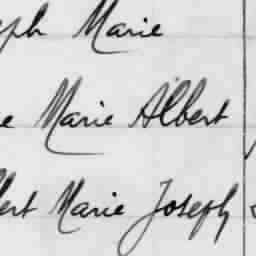 eph Marie
e Marie Albert
bert Marie Joseph